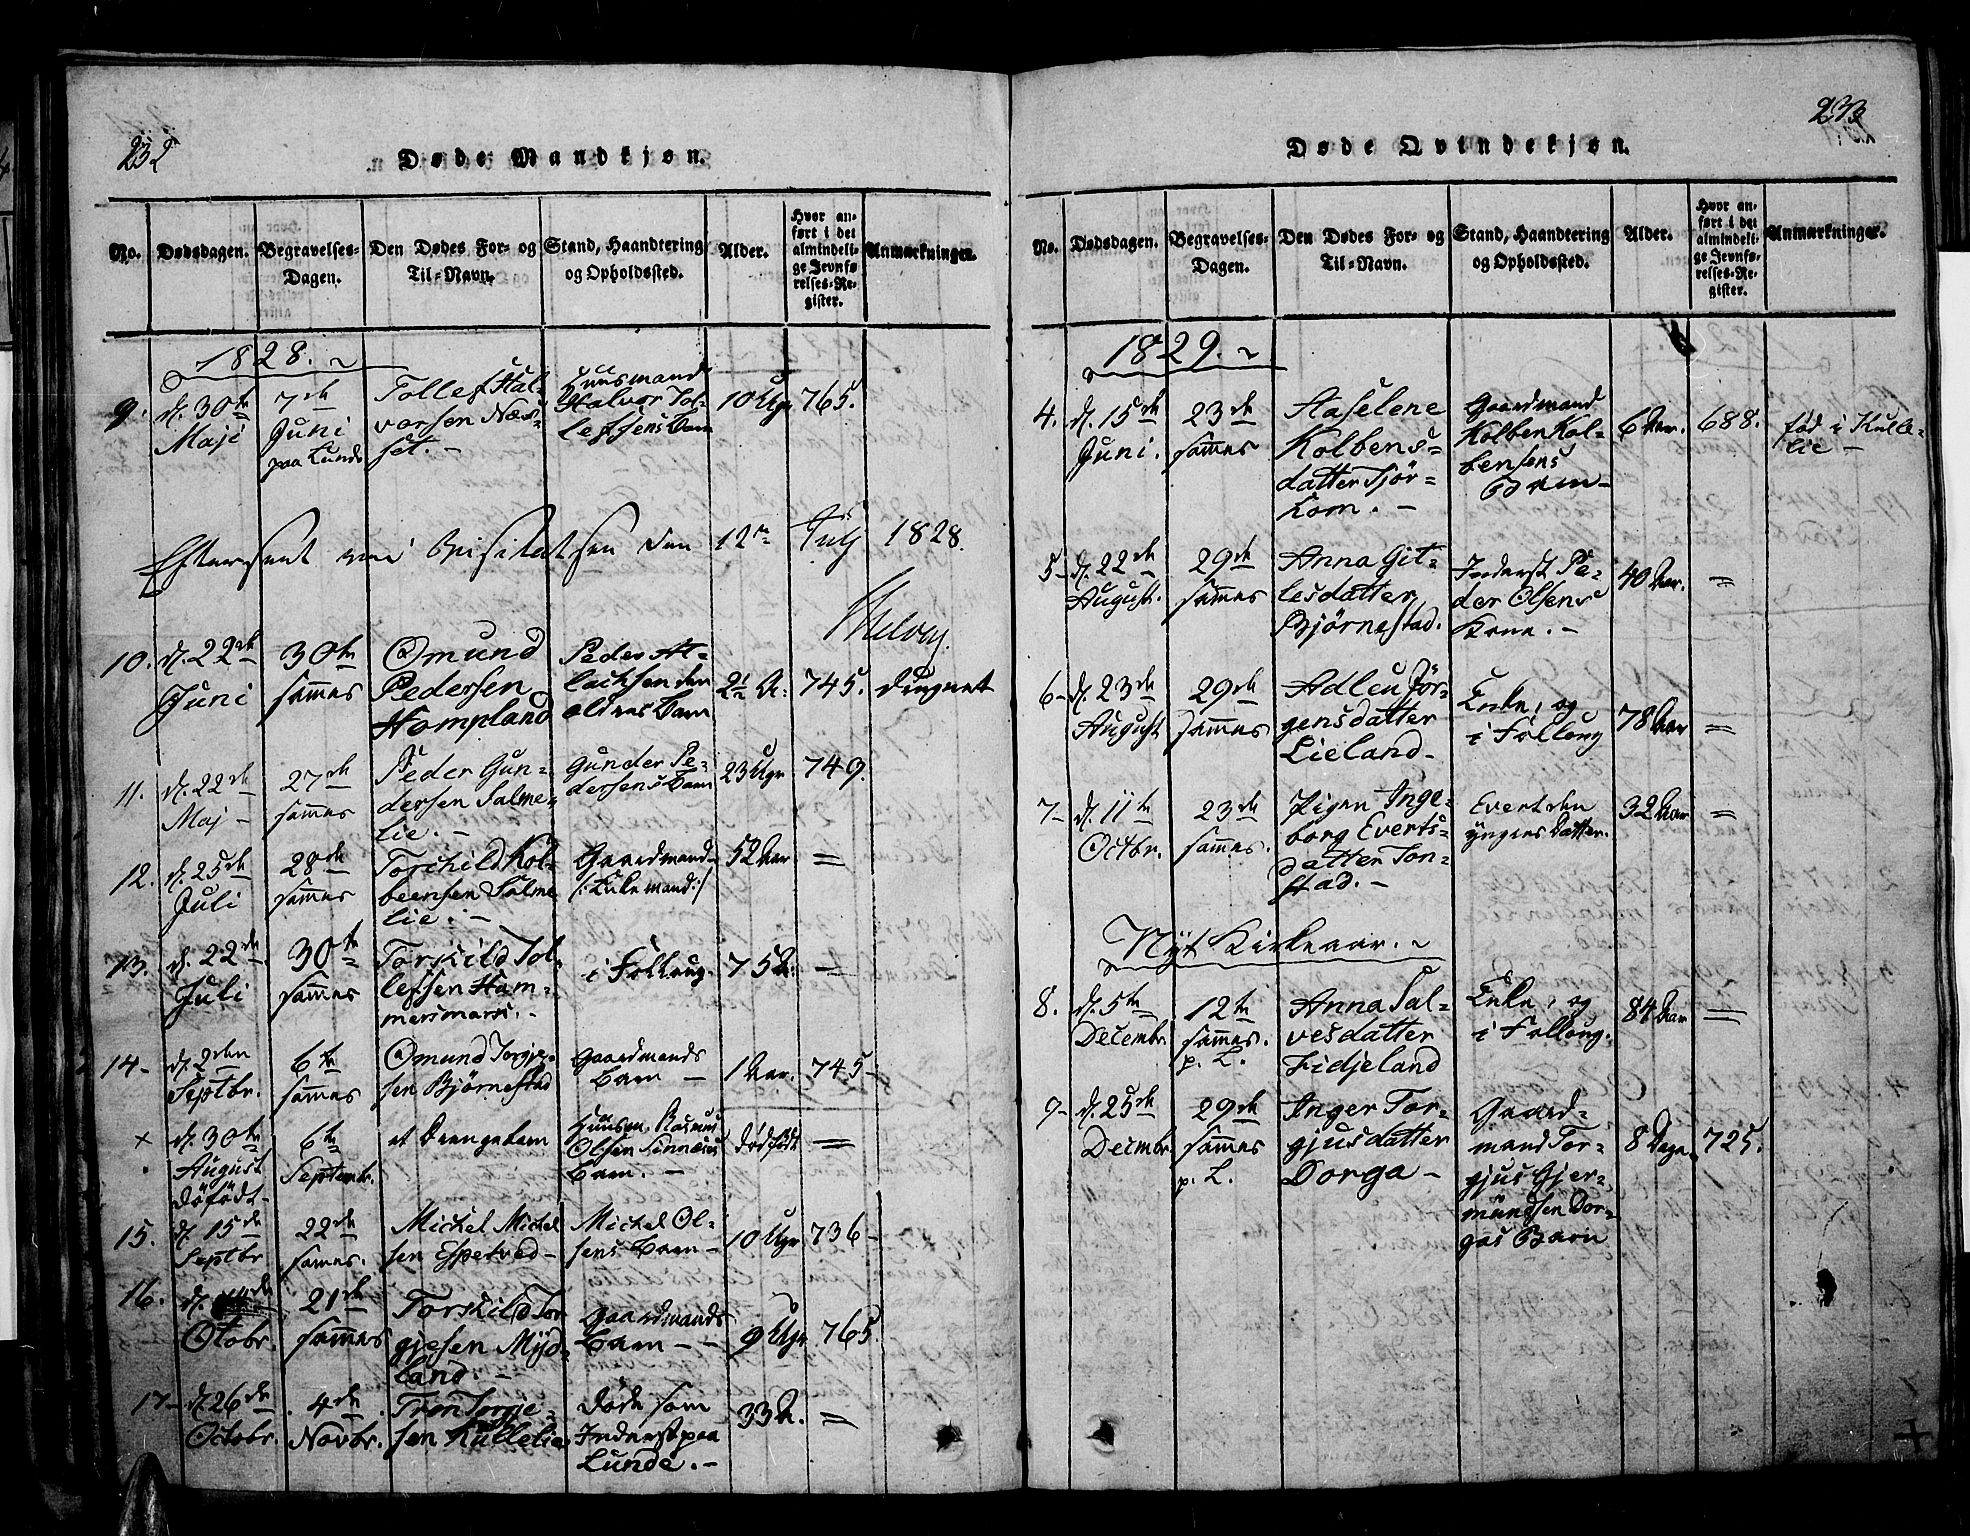 232
Døde Mandkjøn.
No.
Dødsdagen.
Begravelses-
Dagen.
Den Dødes For- og
Til-Navn.
Stand, Haandtering
og Opholdssted.
Alder.
Hvor an-
ført i det
almindeli-
ge Jevnfø-
relses-Re-
gister.
Anmærkninger.
1828.
9.
d. 30te
Maji
7de
Juni
paa Lunde
Tollef Hal-
vorsen Næs-
set.
Huusmand
Halvor Tol-
lefsens Barn
10 Uger
765.
Efterseet ved Visitatsen den 12te July 1828.
10.
d. 22de
Juni
30te
sammes
Omund
Pedersen
Hompland
Peder At-
lachsen den
ældres Barn
2½ A.
745.
11.
d. 22de
Maj
27de
sammes
Peder Gun-
dersen Salme-
lie.
Gunder Pe-
dersens Barn
23 Uger
749.
12.
d. 25de
Juli
28de
sammes
Torchild Kol-
beensen Salme
lie.
Gaardmand
/: Enkemand :/
52 Aar
=
13.
d. 22de
Juli
30te
sammes
Torkild Tol-
lefsen Ham-
mersmark.
i Follaug.
75 A.
=
14
d. 2den
Septbr.
6te
sammes
Omund Torgje-
sen Bjørnestad
Gaardmands
Barn
1 Aar.
745
×
d. 30te
August
døfødt
6te
Septembr.
et Drengebarn
Huusm. Rasmus
Olsen Sinnæses
Barn.
dødfødt
=
15.
d. 15de
Septbr
22de
sammes.
Michel Michel
sen Espetved
Michel Ol-
sens Barn
10 Uger
736
16.
d.
Octobr.
21de
sammes
Torkild Tor
gjesen Mÿd-
land.
Gaardmands
Barn
9 Uger
765
17
d. 26de
Octobr.
4de
Novbr.
Tron Torgje-
sen Kullelie
Døde som
Inderst paa
Lunde.
33 A.
=
233
Døde Qvindekjøn.
No.
Dødsdagen.
Begravelses-
Dagen.
Den Dødes For- og
Til-Navn.
Stand, Haandtering
og Opholdssted.
Alder.
Hvor an-
ført i det
almindeli-
ge Jevnfø-
relses-Re-
gister.
Anmærkninger.
1829.
4.
d. 15de
Juni.
23de
sammes
Aaselene
Kolbens-
datter Tjör-
hom.
Gaardmand
Kolben Kol-
bensens
Barn
6 Aar.
688.
fød i Kulle-
lie
5
d. 22de
August.
29de
sammes
Anna Git-
lesdatter
Björnestad.
Inderst Pe-
der Olsens
Kone.
40 Aar.
=
6
d. 23de
August
29de
sammes
Adleu Jör-
gensdatter
Lieland
Enke, og
i Follaug
78 Aar
=
7
d. 11te
Octbr.
23de
sammes.
Pigen Inge-
borg Everts-
datter Ton-
stad.
Evert den
yngres Datter.
32 Aar
=
Nÿt Kirkeaar.
8.
d. 5te
Decembr
12te
sammes.
p. L.
Anna Sal-
vesdatter
Fidjeland
Enke, og
i Follaug.
84 Aar
=
9
d. 25de
Decmbr
29de
sammes
p. L.
Inger Tor-
gjusdatter
Dorga
Gaard-
mand Tor-
gjus Gjer-
mundsen Dor-
gas Barn
8 Dage
725.